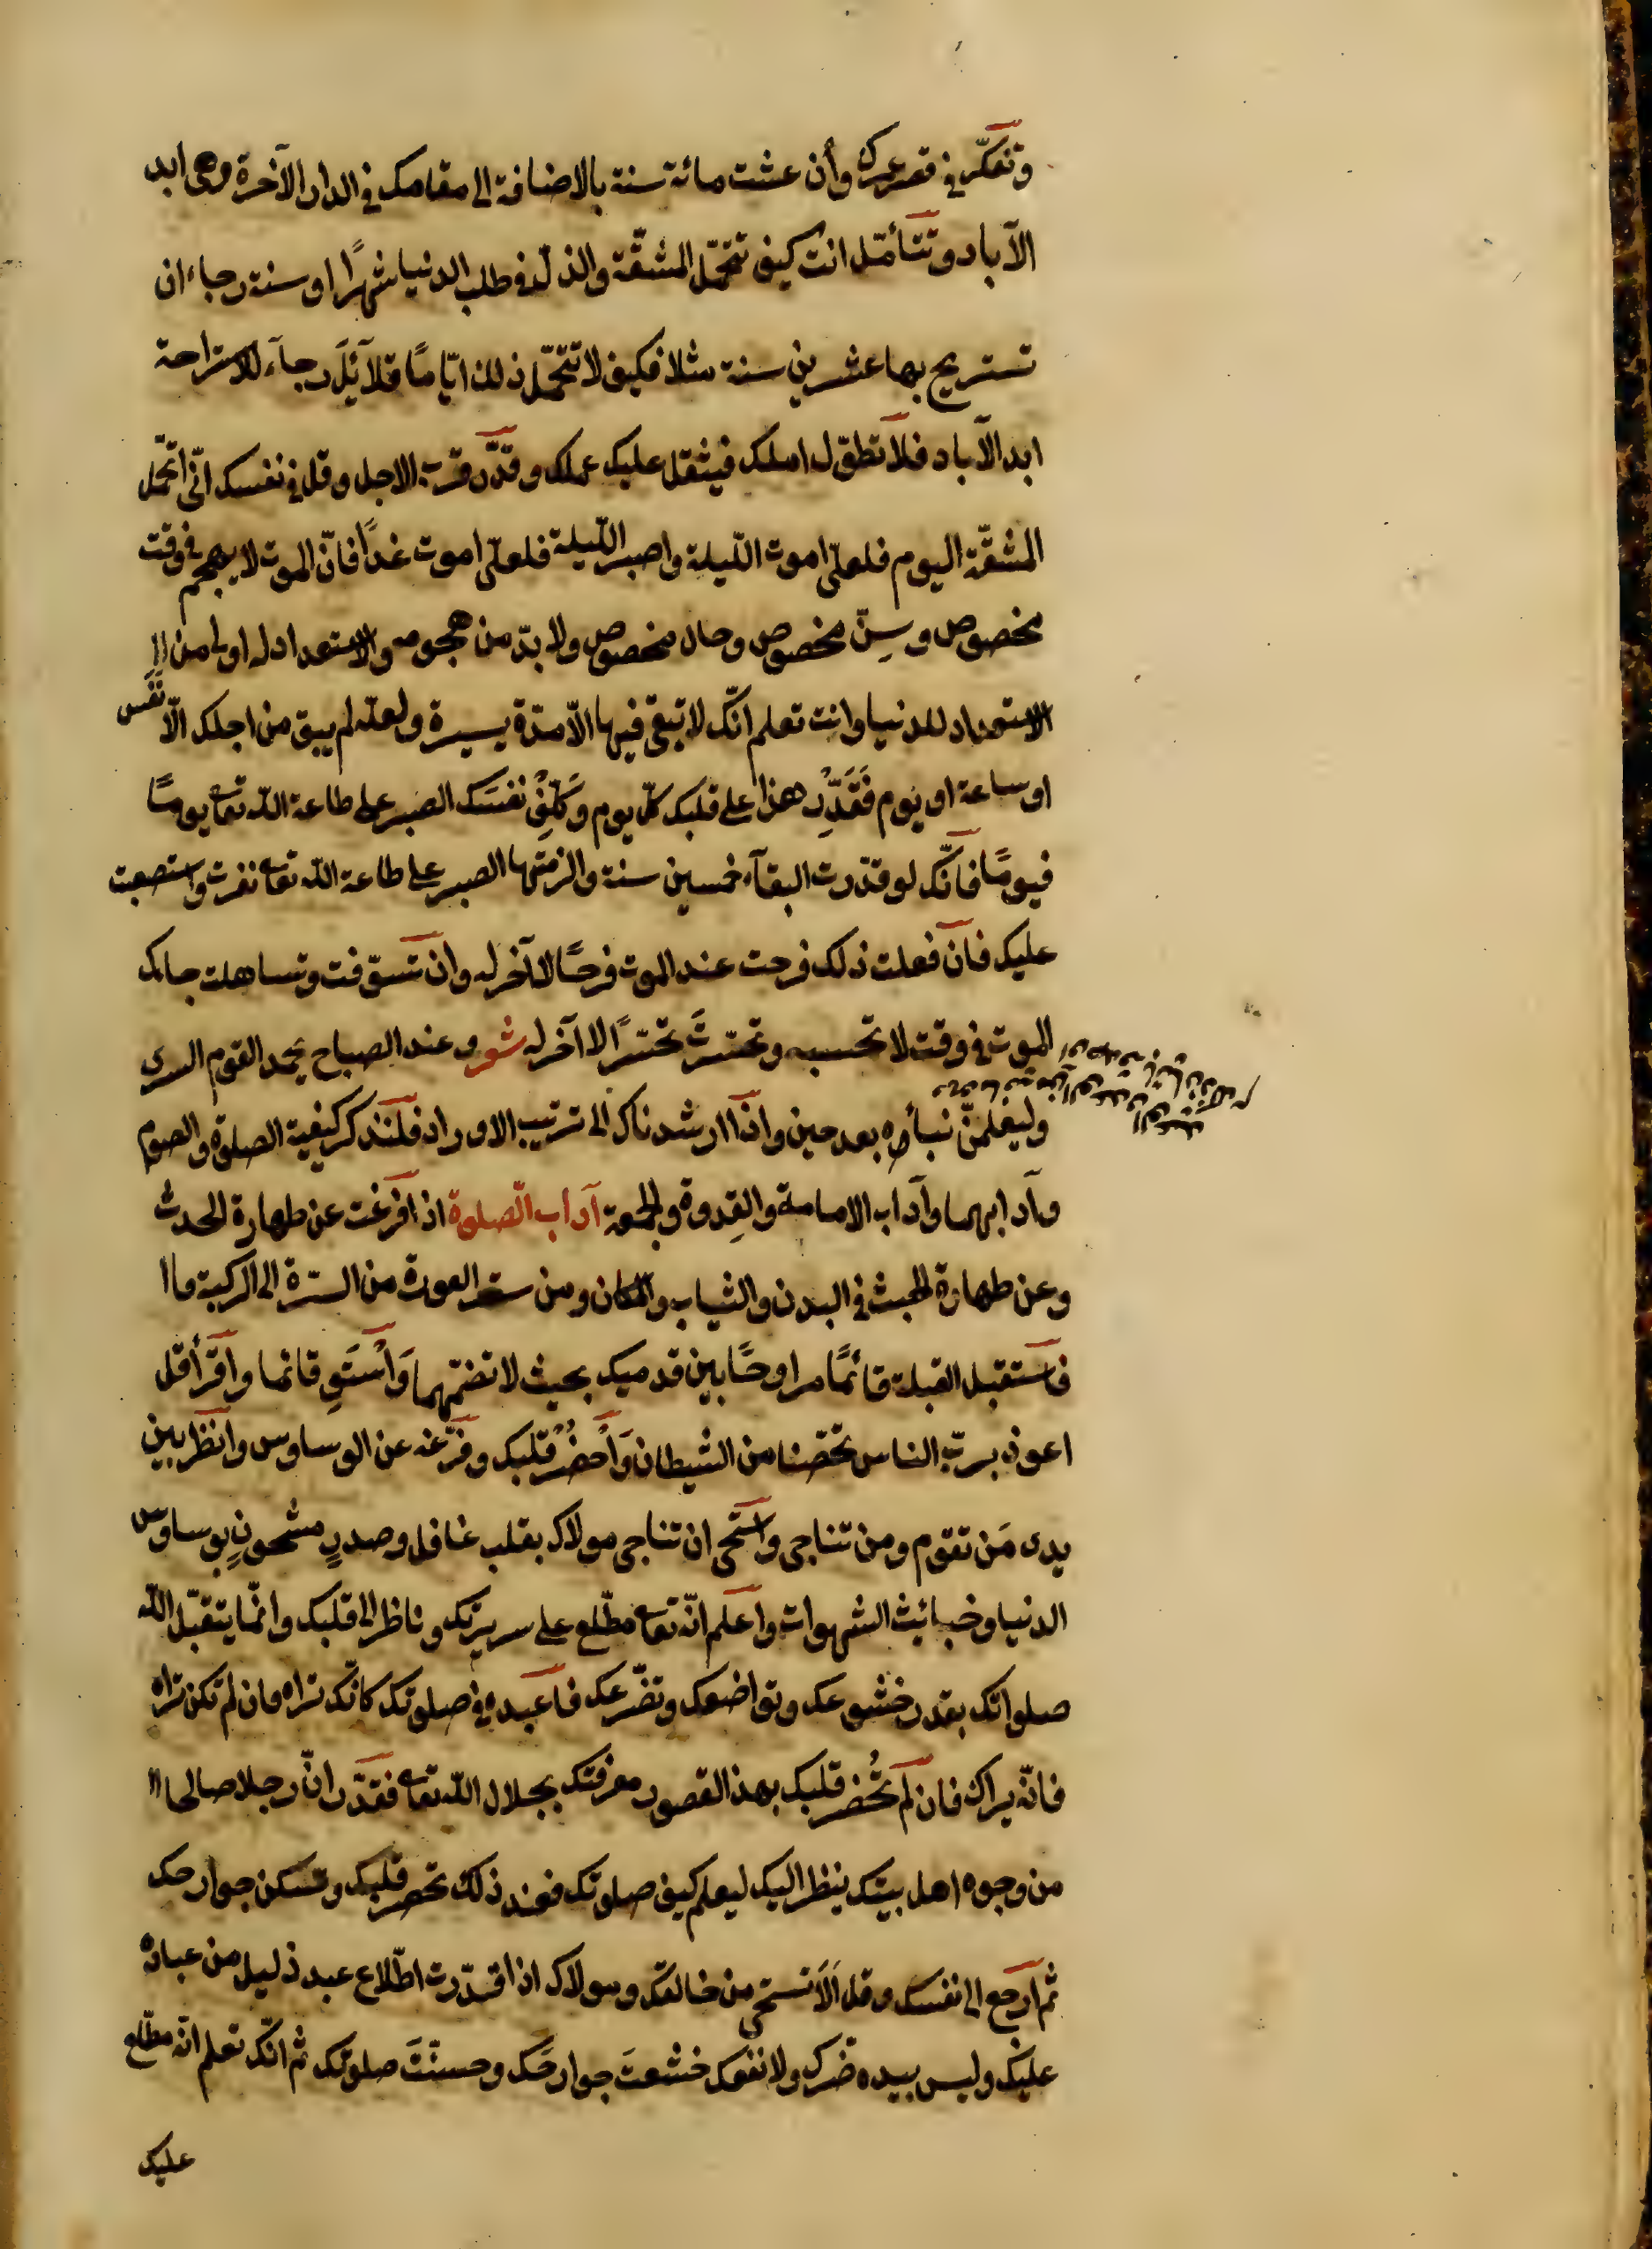 وتفكّر في قصر عمرك وأن عشت مائة سنة بالاضافة الى مقامك في الدار الآخرة وهي ابد
الآباد وتتأمّل انت كيف تتحمّل المشقّة والذلّ في طلب الدنيا شهرًا او سنة رجاء ان
تستريح بها عشرين سنة مثلا فكيف لا تتحمّل ذلك ايّامًا قلآئل رجآء للاستراحة
ابد الآباد فلا تطوّل املك فيثقل عليك عملك وقدّر قرب الاجل وقل في نفسك انّى اتحمّل
المشقّة اليوم فلعلّى اموت اللّيلة واصبر اللّيلة فلعلّى اموت غدًا فانّ الموت لا يهجم في وقت
مخصوص وسِنّ مخصوص وحال مخصوص ولا بدّ من هجومه والاستعداد له اولى من
الاستعداد للدنيا وانت تعلم انّك لا تبقى فيها الّا مدّة يسيرة ولعلّه لم يبق من اجلك الّا نَفَس
او ساعة او يوم فَقَدِّرْ هذا على قلبك كلّ يوم وَكَلِّفْ نفسَك الصبر على طاعة اللّه تعا يومًا
فيومًا فانّك لو قدّرت البقآء خمسين سنة والزمتها الصبر على طاعة اللّه تعا نفرت واستصعبت
عليك فان فعلت ذلك فرحت عند الموت فرحًا لا آخر له وان تسوّفت وتساهلت جاءك
الموت في وقت لا تحسبه وتحسّرتَ تحسّرًا لا آخر له شر وعند الصباح يحمد القوم السرى
وليعلمنّ نبأه بعد حين واذا ارشدناك الى ترتيب الاوراد فلنذكر كيفية الصلوة والصوم
وآدابهما وآداب الامامة والقِدوة والجمعة آداب الصّلوة اذا فرغت عن طهارة الحدث
وعن طهارة الخبث في البدن والثياب والمكان ومن ستر العورة من السرّة الى الركبة
فاستقبل القبلة قائمًا مراوحًا بين قدميك بحيث لا تضمّهما وَاسْتَوِ قائما واقرأ قل
اعوذ بربّ الناس تحصّنا من الشيطان وَأحْضُرْ قلبك وفرّغه عن الوساوس وانظر بين
يدى مَن تقوم ومن تناجى واستحى ان تناجى مولاك بقلب غافل وصدرٍ مشحونٍ بوساوس
الدنيا وخبائث الشهوات واعلم انّه تعا مطّلع على سريرتك وناظر الى قلبك وانّما يتقبّل اللّه
صلواتك بقدر خشوعك وتواضعك وتضرّعك فاعبده في صلوتك كانّك تراه فان لم تكن تراه
فانّه يراك فان لم يُحْضر قلبك بهذا لقصور معرفتك بجلال اللّه تعا فقدّر انّ رجلا صالحا
من وجوه اهل بيتك ينظر اليك ليعلم كيف صلوتك فعند ذلك تحضر قلبك وتسكن جوارحك
ثم ارجع الى نفسك وقل أَلَا تستحى من خالقك ومولاك اذا قدّرت اطّلاع عبد ذليل من عباده
عليك وليس بيده ضرّك ولا نفعك خشعتَ جوارحك وحسنَتْ صلوتك ثم انّك تعلم انّه مطّلع
عليك